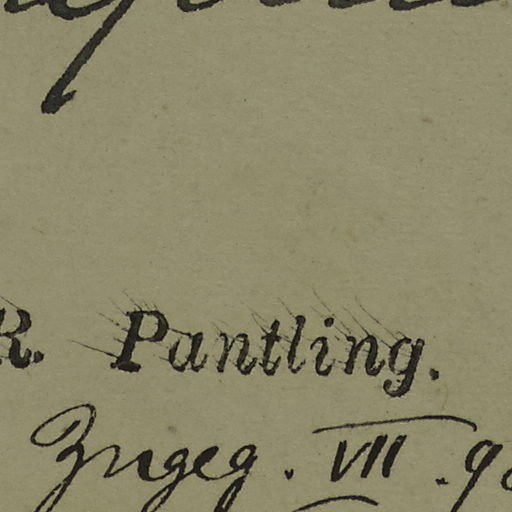 R. Pantling.
Zugeg. VII. 9